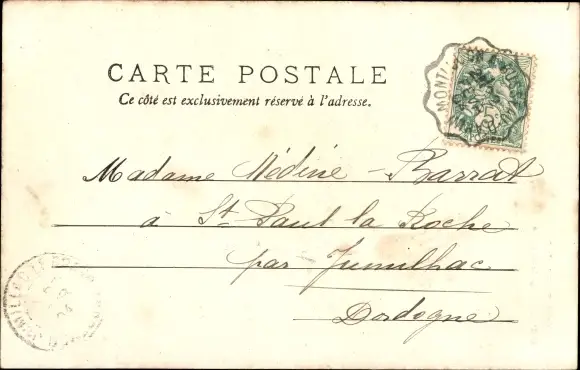 CARTE POSTALE
Ce côté est exclusivement réservé à l'adresse.
Madame Médine - Barrat
à St Paul la Roche
par Jumilhac
Dordogne